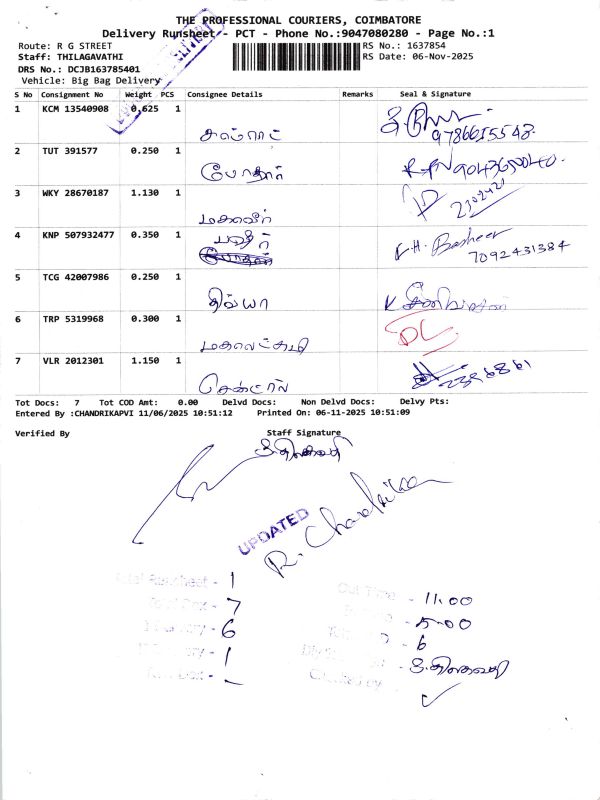 THE PROFESSIONAL COURIERS, COIMBATORE
Delivery Runsheet - PCT - Phone No.:9047080280 - Page No.:1
Route: R G STREET RS No.: 1637854
Staff: THILAGAVATHI RS Date: 06-Nov-2025
DRS No.: DCJB163785401
Vehicle: Big Bag Delivery
S No Consignment No Weight PCS Consignee Details Remarks Seal & Signature
1 KCM 13540908 0.625 1
9786615543
2 TUT 391577 0.250 1 போதார்
3 WKY 28670187 1.130 1 மகாவீர்
2302421
4 KNP 507932477 0.350 1 பஷீர் K.H. Basheer
7092431384
5 TCG 42007986 0.250 1 திவ்யா
6 TRP 5319968 0.300 1 மகாலட்சுமி DL
7 VLR 2012301 1.150 1 2396861
Tot Docs: 7 Tot COD Amt: 0.00 Delvd Docs: Non Delvd Docs: Delvy Pts:
Entered By :CHANDRIKAPVI 11/06/2025 10:51:12 Printed On: 06-11-2025 10:51:09
Verified By Staff Signature
க.திலகவதி
UPDATED
R. Chandrika
Total Runsheet - 1
Out Time - 11.00
7
5.00
6
6
1
க.திலகவதி